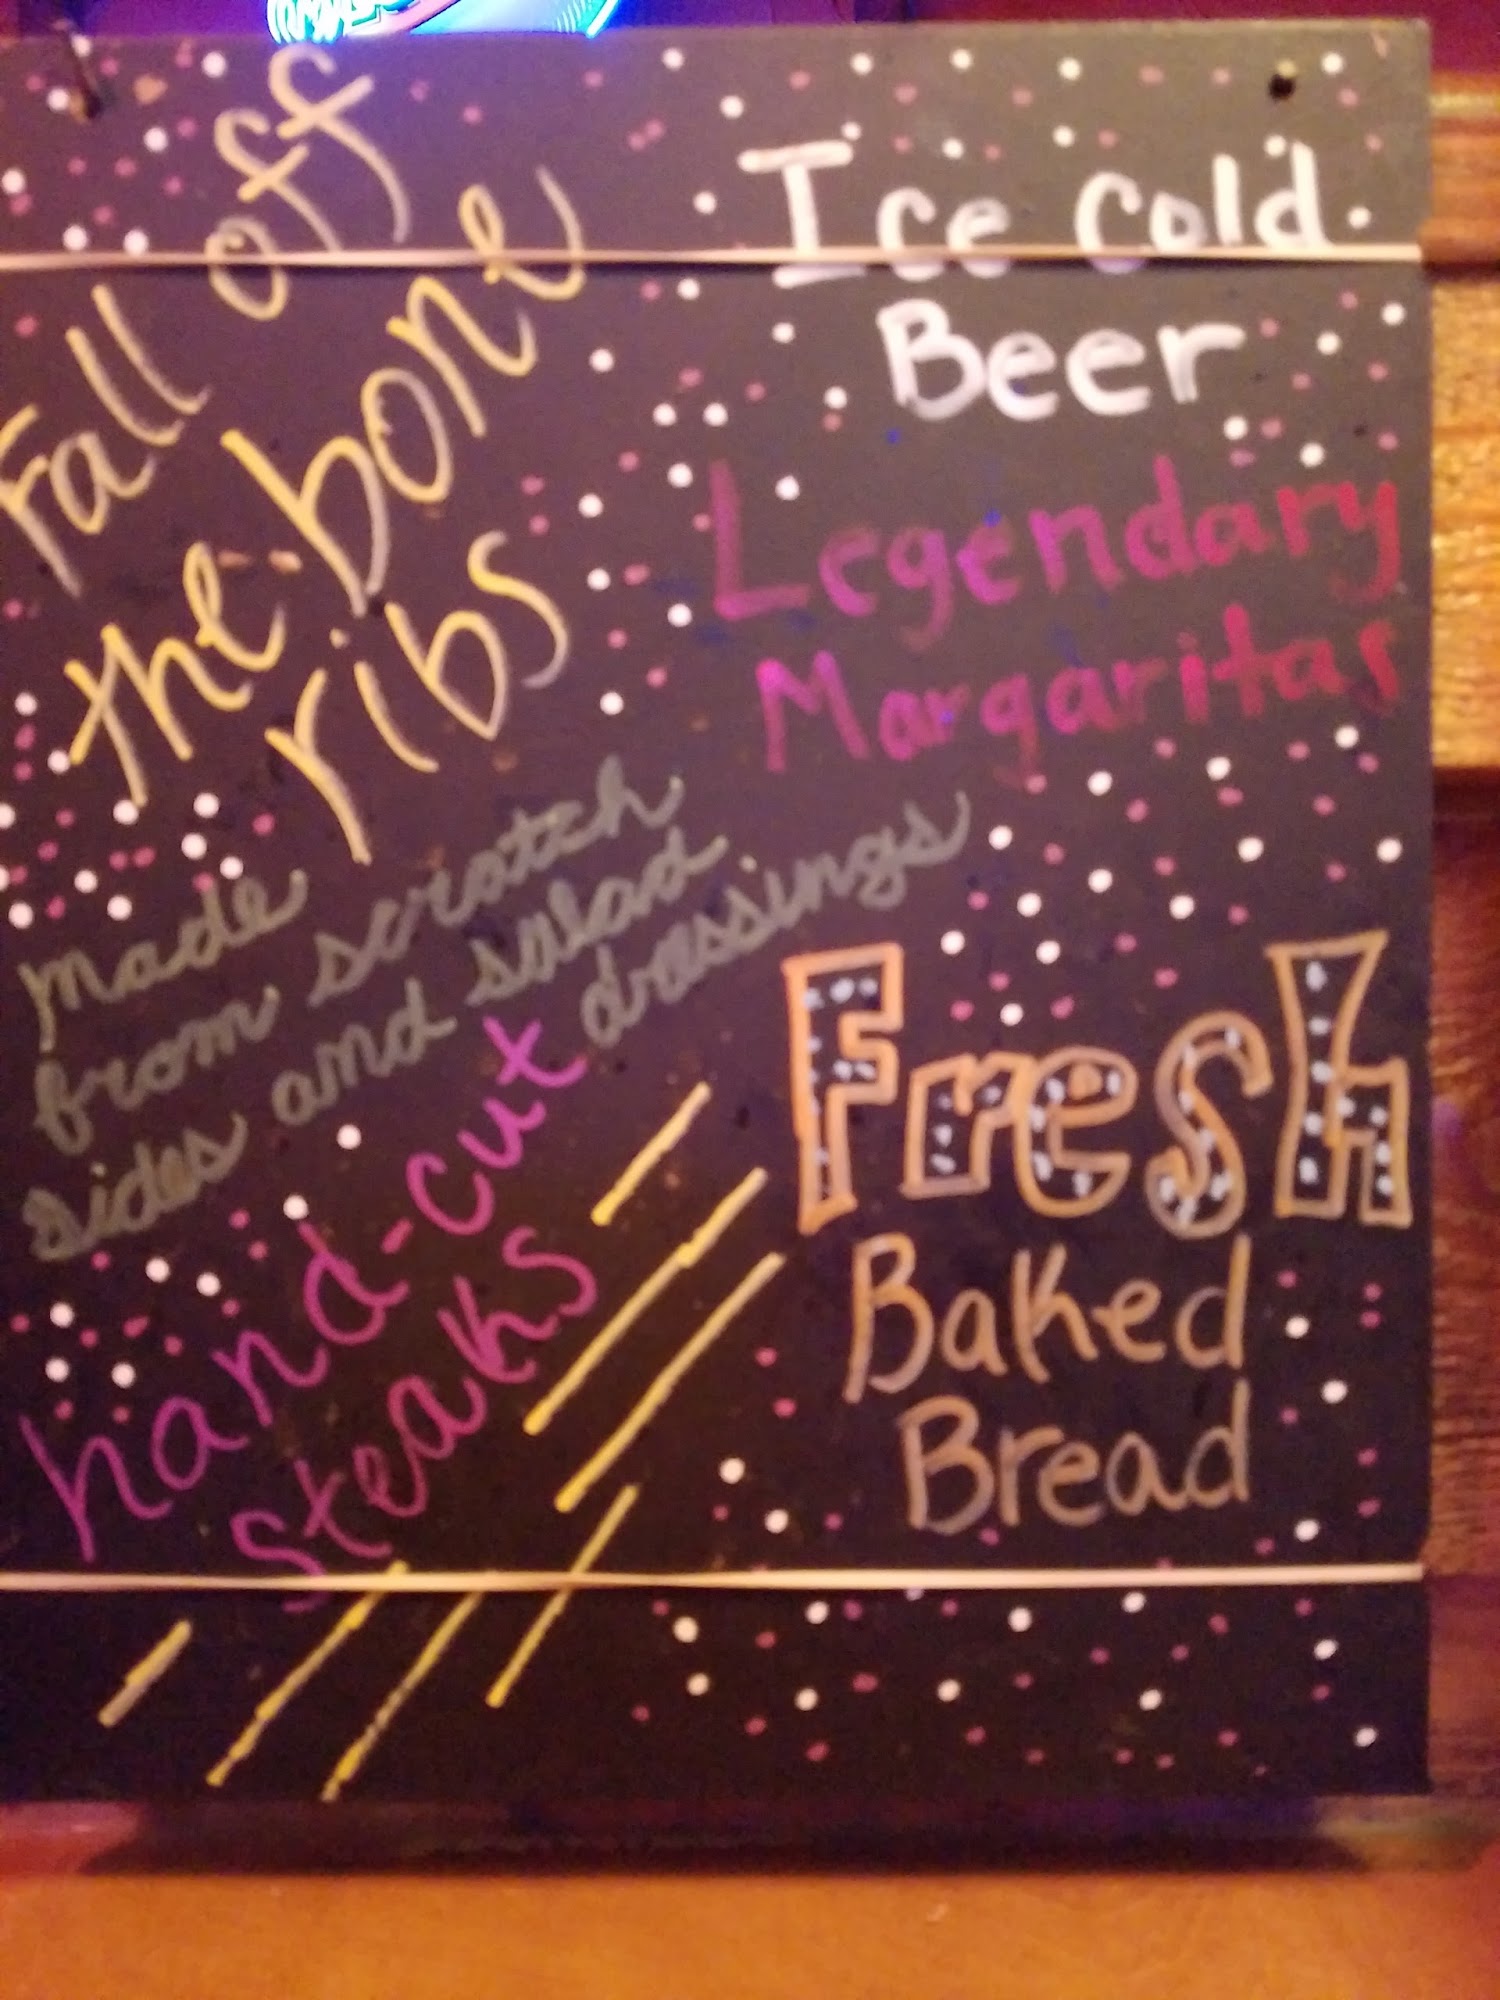 Fall off
the bone
ribs
Ice Cold
Beer
Legendary
Margaritas
made
from scratch
sides and salad
dressings
hand-cut
steaks
Fresh
Baked
Bread